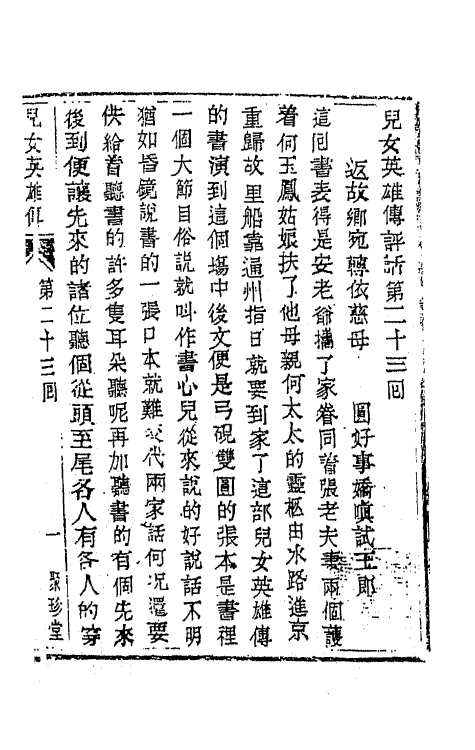 兒女英雄傳評話第二十三回
返故鄉宛轉依慈母　圓好事嬌嗔試玉郎
這回書表得是安老爺攜了家眷同着張老夫妻兩個護
着何玉鳳姑娘扶了他母親何太太的靈柩由水路進京
重歸故里船靠通州指日就要到家了這部兒女英雄傳
的書演到這個塲中後文便是弓硯雙圓的張本是書裡
一個大節目俗説就叫作書心兒從來說的好說話不明
猶如昏鏡說書的一張口本就難交代兩家話何况還要
供給着聽書的許多隻耳朵聽呢再加聽書的有個先來
後到便讓先來的諸位聽個從頭至尾各人有各人的穿
兒女英雄傳　第二十三回　一　聚珍堂